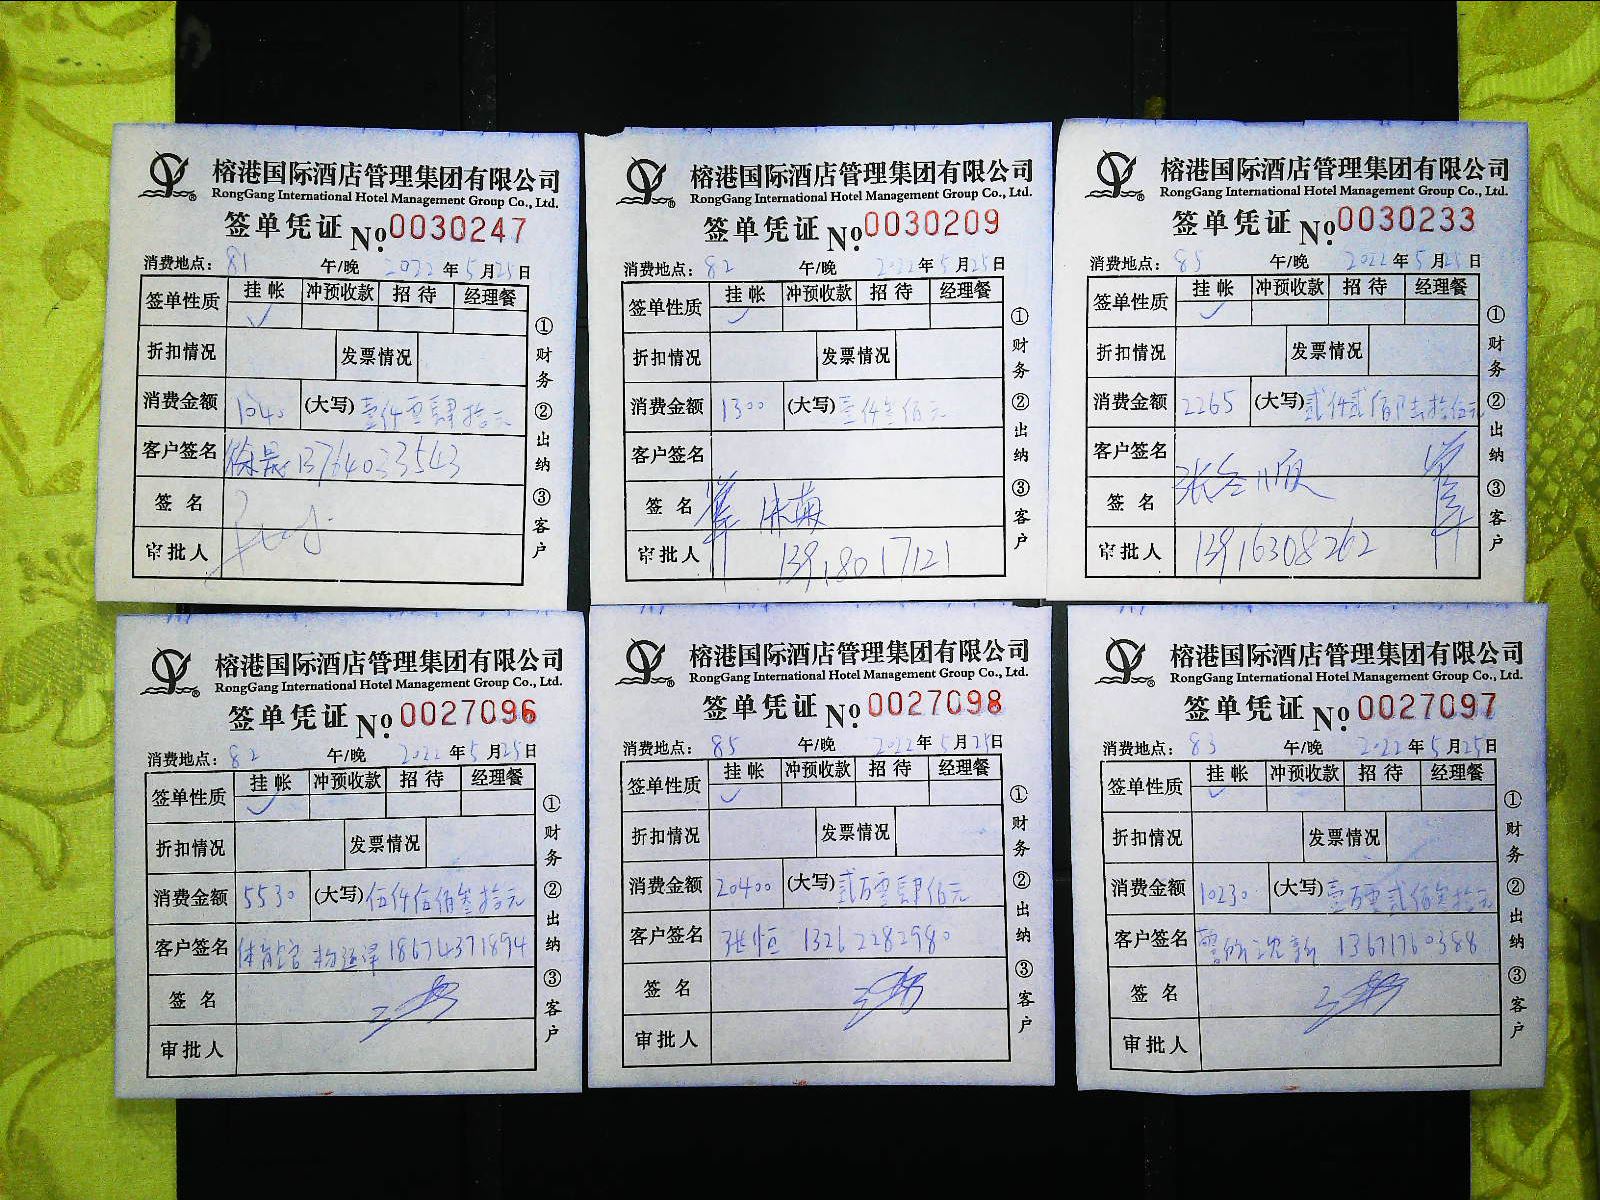 榕港国际酒店管理集团有限公司
RongGang International Hotel Management Group Co., Ltd.
签单凭证 No. 0030247
消费地点: 81 午/晚 2022年5月25日
签单性质 挂帐 冲预收款 招待 经理餐
✓
折扣情况 发票情况
消费金额 1040 (大写) 壹仟零肆拾元
客户签名 徐晨 13764033543
签名
审批人
①财务 ②出纳 ③客户
榕港国际酒店管理集团有限公司
RongGang International Hotel Management Group Co., Ltd.
签单凭证 No. 0030209
消费地点: 82 午/晚 2022年5月25日
签单性质 挂帐 冲预收款 招待 经理餐
✓
折扣情况 发票情况
消费金额 1300 (大写) 壹仟叁佰元
客户签名
签名
审批人 13918017121
①财务 ②出纳 ③客户
榕港国际酒店管理集团有限公司
RongGang International Hotel Management Group Co., Ltd.
签单凭证 No. 0030233
消费地点: 85 午/晚 2022年5月25日
签单性质 挂帐 冲预收款 招待 经理餐
✓
折扣情况 发票情况
消费金额 2265 (大写) 贰仟贰佰陆拾伍元
客户签名
签名
审批人 13916308262
①财务 ②出纳 ③客户
榕港国际酒店管理集团有限公司
RongGang International Hotel Management Group Co., Ltd.
签单凭证 No. 0027096
消费地点: 82 午/晚 2022年5月25日
签单性质 挂帐 冲预收款 招待 经理餐
✓
折扣情况 发票情况
消费金额 5530 (大写) 伍仟伍佰叁拾元
客户签名 体育馆 18674371894
签名
审批人
①财务 ②出纳 ③客户
榕港国际酒店管理集团有限公司
RongGang International Hotel Management Group Co., Ltd.
签单凭证 No. 0027098
消费地点: 85 午/晚 2022年5月25日
签单性质 挂帐 冲预收款 招待 经理餐
✓
折扣情况 发票情况
消费金额 20400 (大写) 贰万零肆佰元
客户签名 张恒 13262282980
签名
审批人
①财务 ②出纳 ③客户
榕港国际酒店管理集团有限公司
RongGang International Hotel Management Group Co., Ltd.
签单凭证 No. 0027097
消费地点: 83 午/晚 2022年5月25日
签单性质 挂帐 冲预收款 招待 经理餐
✓
折扣情况 发票情况
消费金额 10230 (大写) 壹万零贰佰叁拾元
客户签名 13671760388
签名
审批人
①财务 ②出纳 ③客户